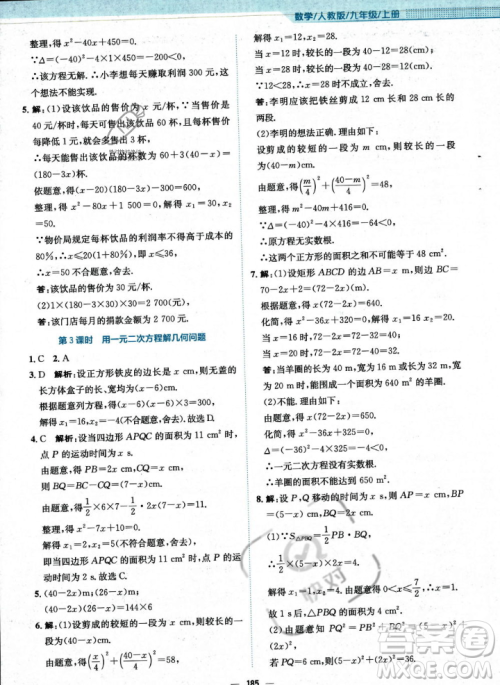 数学/人教版/九年级/上册
整理,得 x²-40x+450=0.
∵Δ=(-40)²-4×450=-200<0,
∴该方程无解.∴小李想每天赚取1 450元的
想法不能实现.
5.解:(1)设该饮品的售价为 x 元/杯.∵当售价为
40元/杯时,每天可售出60杯,售价每
降低1元,就会多售出3杯,
∴能售出该饮品的杯数为 60+3(40-x)=
(180-3x)杯.
依题意,得(x-20)(180-3x)=1 350.
整理,得 x²-80x+1 500=0,解得 x₁=30,x₂
=50.
∵物价局规定每杯饮品的利润率不得低于
80%,
∴x=50 不符合题意,舍去.
答:该饮品的售价为
(2)1×(180-3×30)×30=2 700(元).
答:该门店每月的捐款金额为 2 700元.
第3课时 用一元二次方程解几何问题
1.C 2.A
3.D 解析:设正方形铁皮的边长是 x cm,则没盖的
长方体盒子的长、宽均为(x-6)cm,高为3 cm.
根据题意列方程,得(x-6)(x-6)×3=300,
解得 x₁=16,x₂=-4(不合题意,舍去).故选 D.
4.C 解析:设当四边形 APQC 的面积为 11 cm² 时,
点 P 的运动时间为 x s.
由题意,得 PB=(6-x)cm,
则 BQ=
由题意,得 1/2×6×7-1/2·2x(6-x)=11,
整理,得 x²-6x+
解得 x₁=
即当四边形 APQC 的面积为 11 cm² 时,点 P 的运
动时间为
5.(40-2x)m;(26-x)m;
(40-2x)(26-x)=
6.解:(1)设剪成的较短的一段为 x cm,则较长的一
段为(40-x)cm.
由题意,得(x/4)²+((40-x)/4)²=58,
解得 x₁=12,x₂=28.
当 x=12 时,较长的一段为 40-12=28(cm);
当 x=28 时,较长的一段为 40-28=12(cm).
∵12<28,∴x=28 不合题意,舍去.
答:李明应该把铁丝剪成 12 cm 和 28 cm 的
两段.
(2)李明的说法正确.理由如下:
设剪成的较短的一段为 m cm,则较长的一段为
(40-m)cm.
由题意,得(m/4)²+((40-m)/4)²=48,
整理,得 m²-40m+416=0.
∵Δ=(-40)²-4×416=-64<0,
∴原方程无实数根.
∴这两个正方形的面积之和不可能等于 48 cm².
7.解:(1)设矩形 ABCD 的边 AB=x m,则边 BC
=70-2x+2=(72-2x)m.
由题意,得 x(72-2x)=640.
化简,得 x²-36x+320=0.
解得 x₁=16,x₂=20.
当 x=16 时,72-2x=72-32=40,
当 x=20 时,72-2x=72-40=32.
答:当羊圈的长为 40 m,宽为 16 m 或长为 32 m,
宽为 20 m 时,能围成一个面积为 640 m² 的羊圈.
(2)不能.
由题意,得 x(72-2x)=650.
化简,得 x²-36x+325=0,
Δ=(-36)²-4×325=-4<0,
∴一元二次方程没有实数根.
∴羊圈的面积不能达到 650 m².
8.解:设 P,Q 移动的时间为 x s,则 AP=x cm,BP
=(5-x)cm,BQ=2x cm.
(1)∵S△PBQ=1/2 PB·BQ,
∴(5-x)·2x×1/2=4,
解得 x₁=1,x₂=4.
由题意知 0<x≤7/2,
故 1 s后,△PBQ 的面积等于 4 cm².
(2)由题意知 PQ²=PB²+BQ²=(5-x)²
+(2x)².
若 PQ=6 cm,则(5-x)²+(2x)²=36.
185